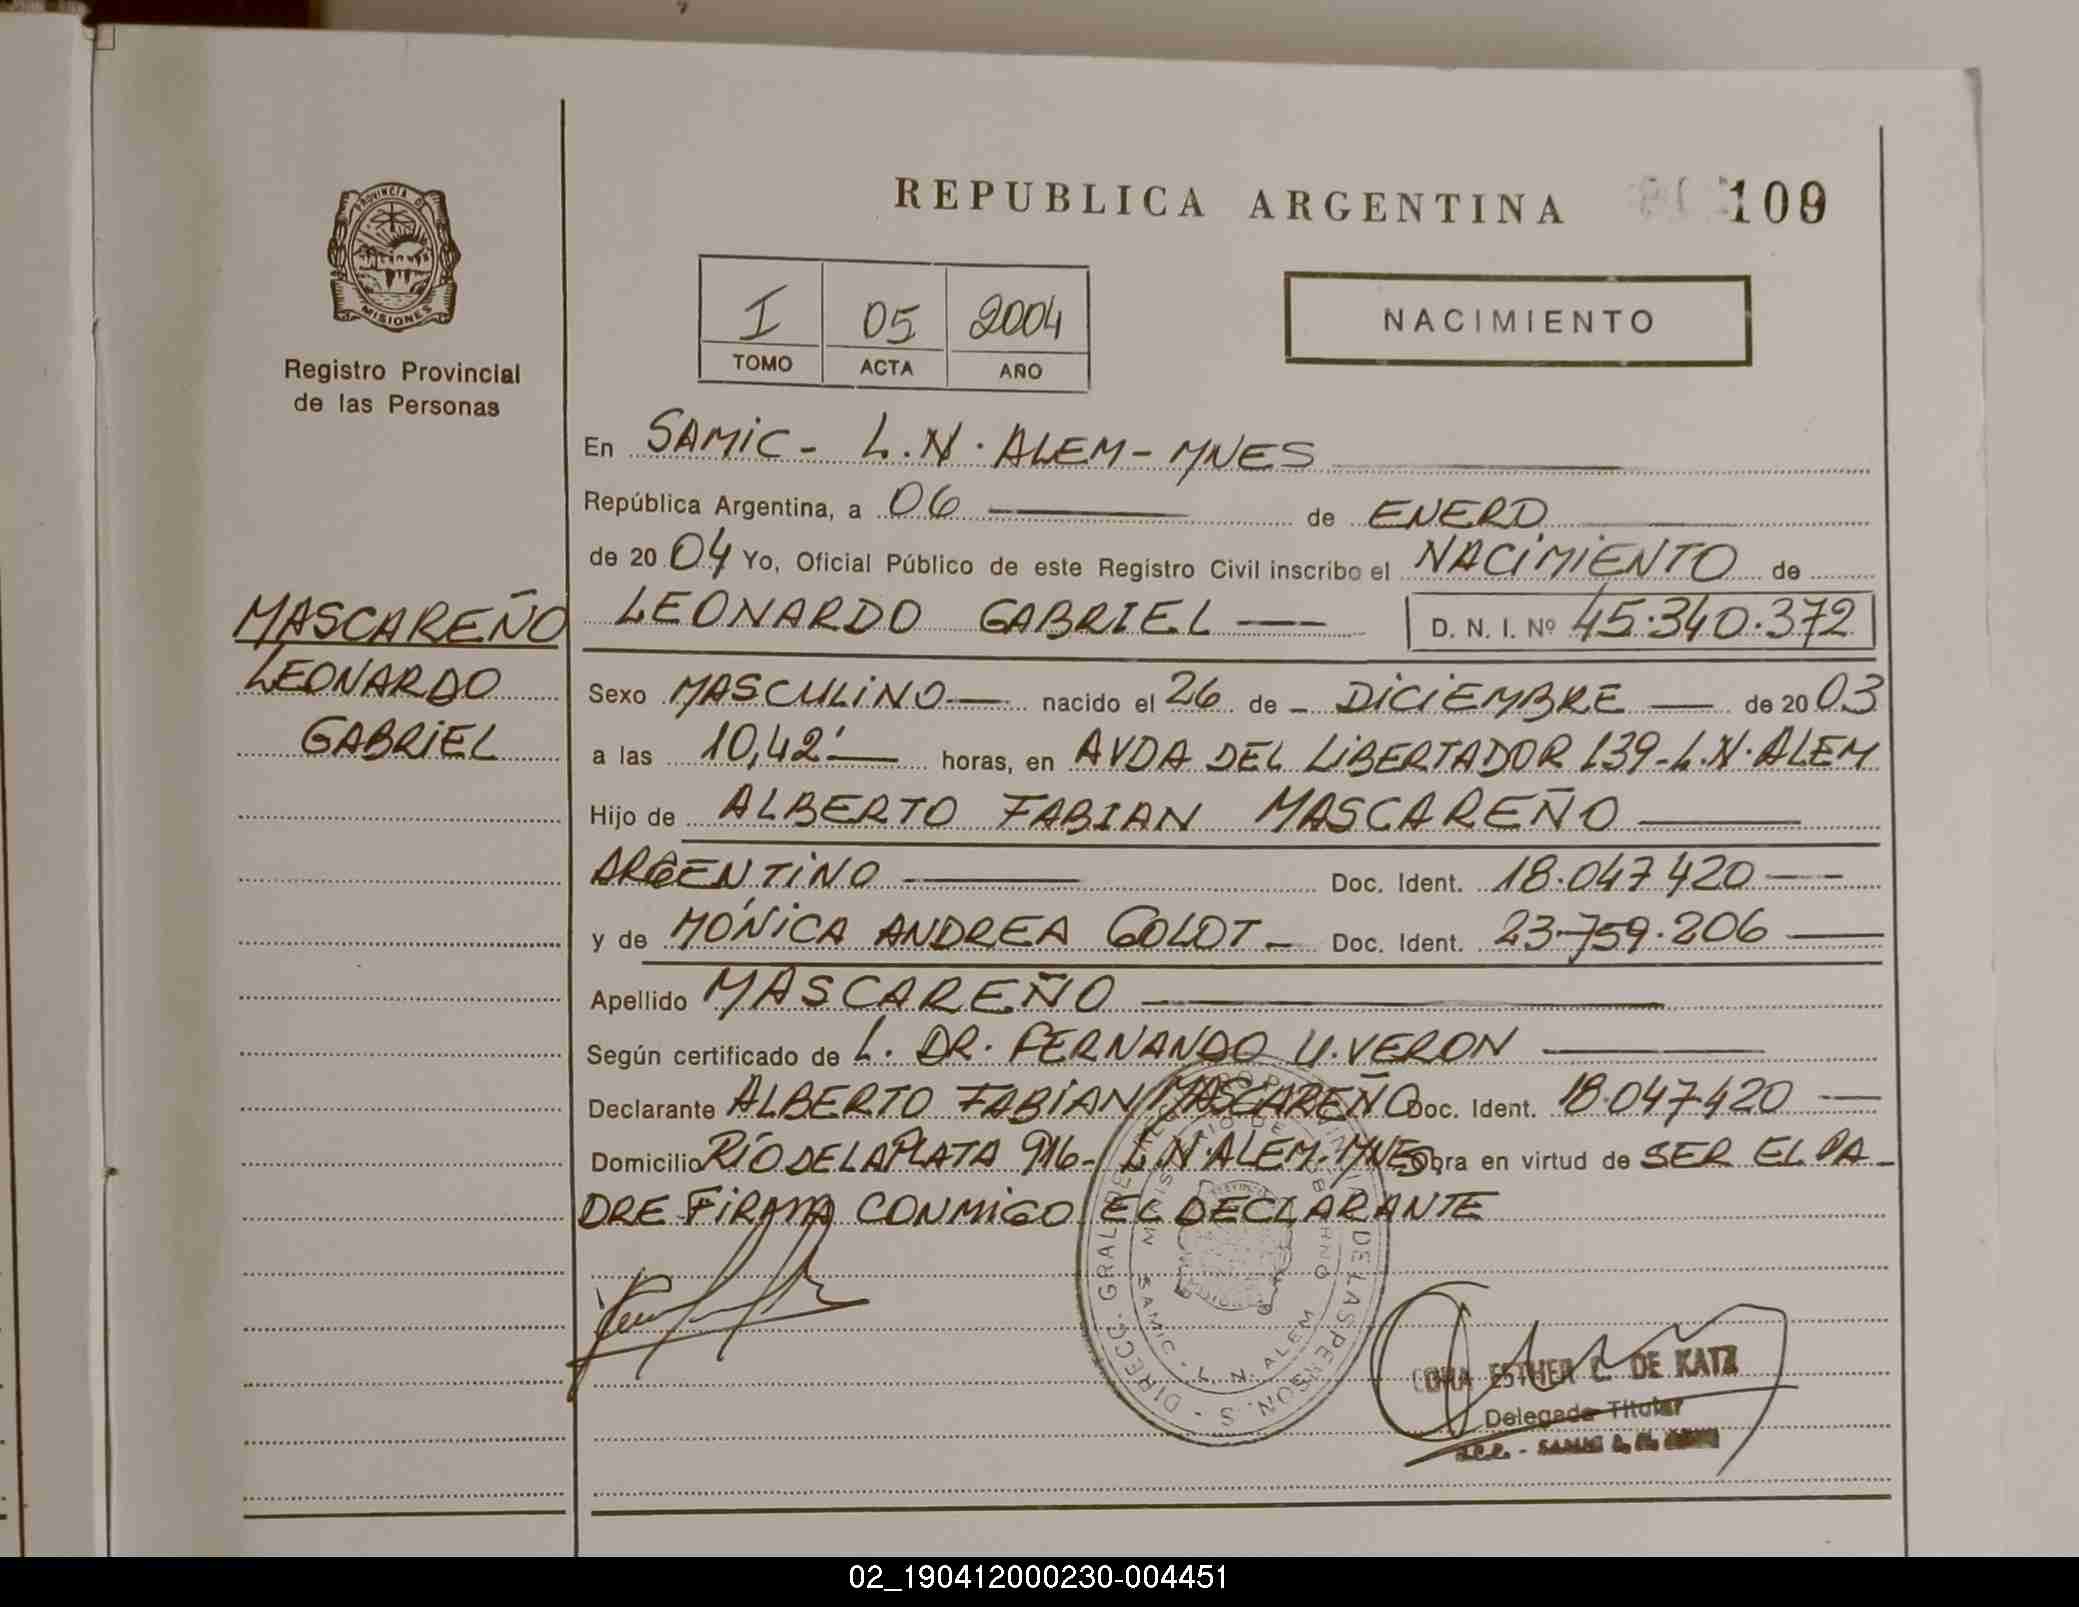 REPUBLICA ARGENTINA
109
PROVINCIA DE
MISIONES
Registro Provincial
de las Personas
I 05 2004
TOMO ACTA AÑO
NACIMIENTO
En SAMIC - L.N. ALEM - MNES
República Argentina, a 06 de ENERO
de 20 04 Yo, Oficial Público de este Registro Civil inscribo el NACIMIENTO de
MASCAREÑO
LEONARDO
GABRIEL
LEONARDO GABRIEL D. N. I. Nº 45.340.372
Sexo MASCULINO nacido el 26 de DICIEMBRE de 20 03
a las 10,42' horas, en AVDA DEL LIBERTADOR 139 - L.N. ALEM
Hijo de ALBERTO FABIAN MASCAREÑO
ARGENTINO Doc. Ident. 18.047.420
y de MÓNICA ANDREA GOLOT Doc. Ident. 23.759.206
Apellido MASCAREÑO
Según certificado de L. DR. FERNANDO U. VERON
Declarante ALBERTO FABIAN MASCAREÑO Doc. Ident. 18.047.420
Domicilio RÍO DE LA PLATA 916 - L.N. ALEM - MNES Obra en virtud de SER EL PA-
DRE FIRMA CONMIGO EL DECLARANTE
DIRECC. GRAL DE DE LAS PERSON.S
SAMIC - L. N. ALEM
ESTHER C. DE KATZ
Delegada Titular
02_190412000230-004451